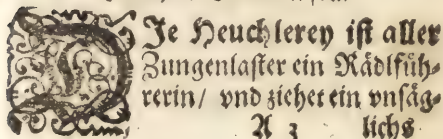 DJe Heuchlerey ist aller
Zungenlaster ein Rädlfüh-
rerin/ vnd ziehet ein vnsäg-
A 3 lichs